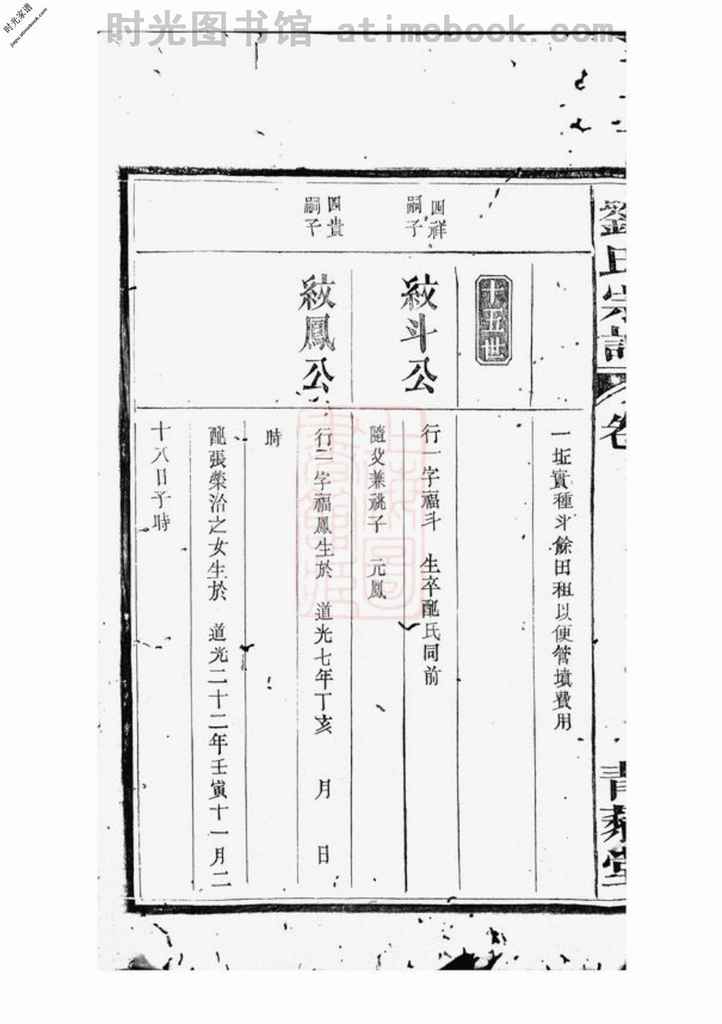 时光图书馆 atimebook.com
时光家谱
jiapu.atimebook.com
劉氏宗譜
卷
青藜堂
一坵實種斗餘田租以便管墳費用
十五世
國祥
嗣子
紋斗公
行一字福斗 生卒配氏同前
隨父兼祧子 元鳳
國貴
嗣子
紋鳳公
行二字福鳳生於 道光七年丁亥 月 日
時
配張榮治之女生於 道光二十二年壬寅十一月二
十八日子時